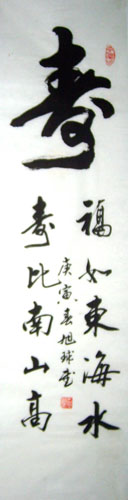 壽
福如東海水
壽比南山高
庚寅春旭球书